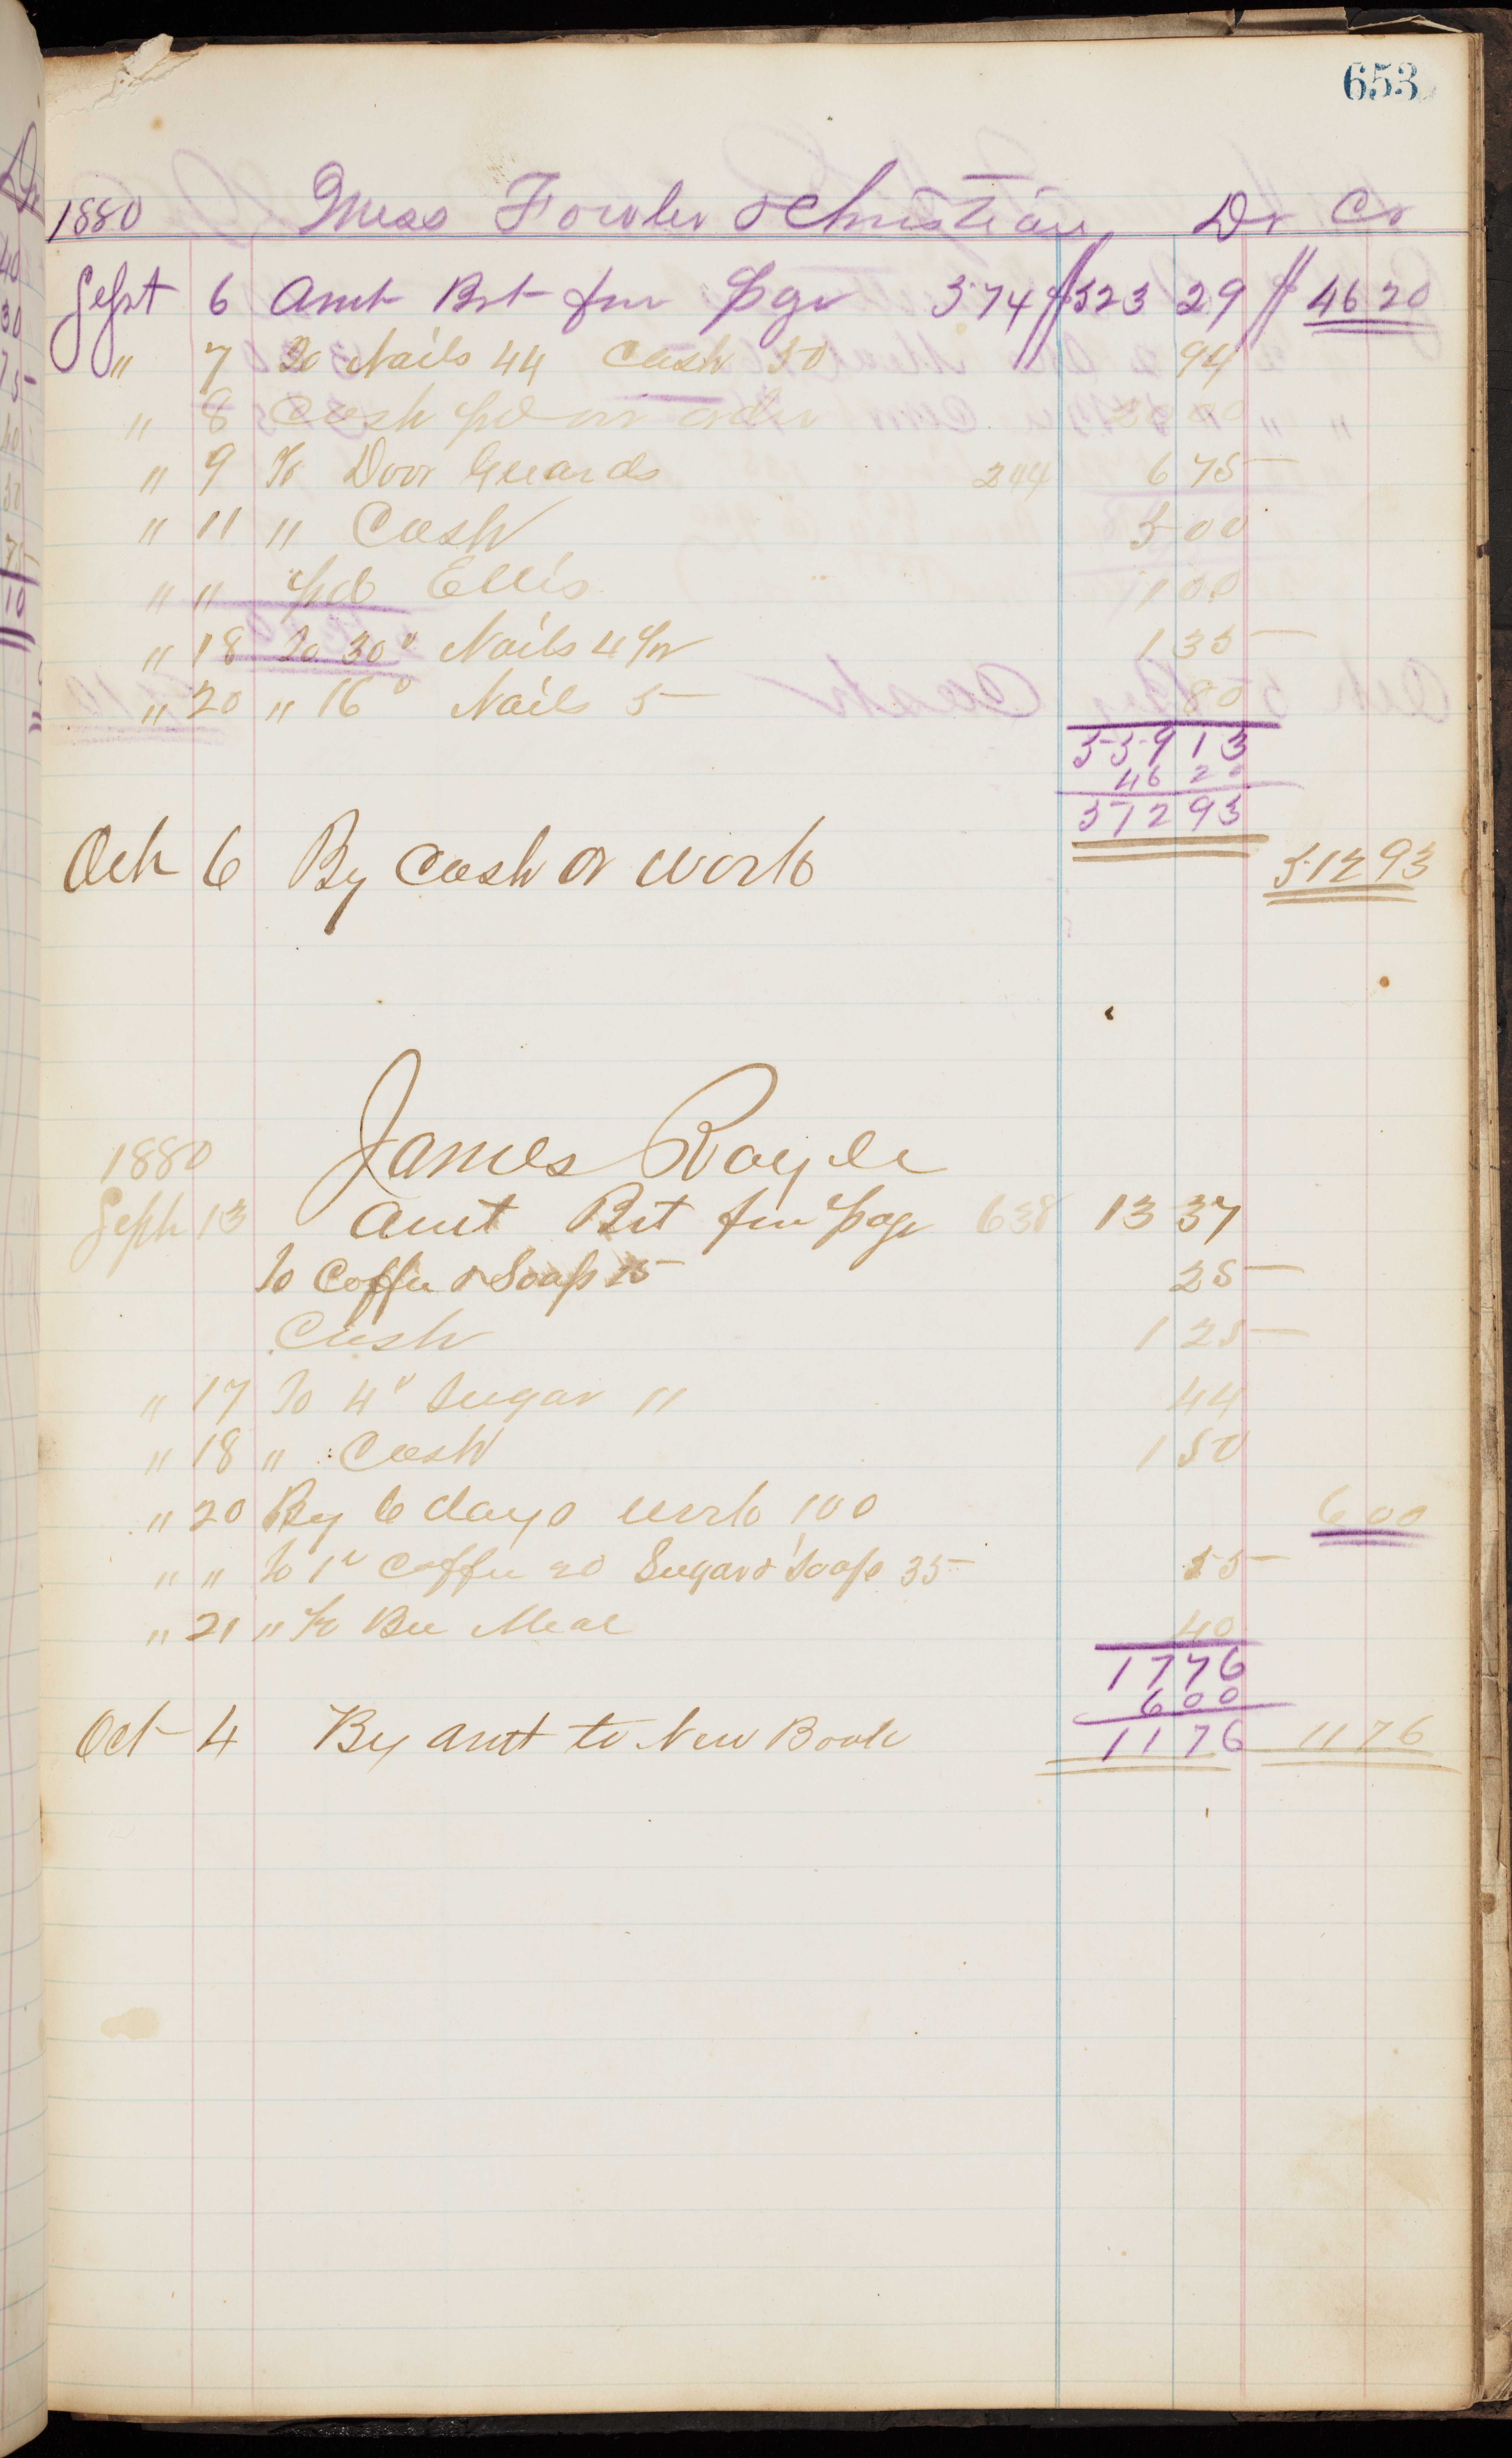 653
1880 Mess Fowler & Christian, Dr Cr
Sept 6 Amt Brt frm Pge 574 $523 29 $ 46 20
" 7 To Nails 44 Cash 50 94
" 8 Cash pd on order 20 00
" 9 To Door Guards 244 6 75
" 11 " Cash 5 00
" " pd Ellis 1 00
" 18 To 30" Nails 4 1/2 1 35
" 20 " 16" Nails 5 80
559 13
46 20
512 93
Oct 6 By Cash or work 512 93
James Royle
1880
Sept 13 Amt Brt frm Page 638 13 37
To Coffee & Soap 25
Cash 1 25
" 17 To 4" Sugar 11 44
" 18 " Cash 1 50
" 20 By 6 days work 100 6 00
" " To 1" Coffee 20 Sugar & Soape 35 55
" 21 " 1/2 Bu Meal 40
17 76
6 00
11 76
Oct 4 By amt to New Book 11 76